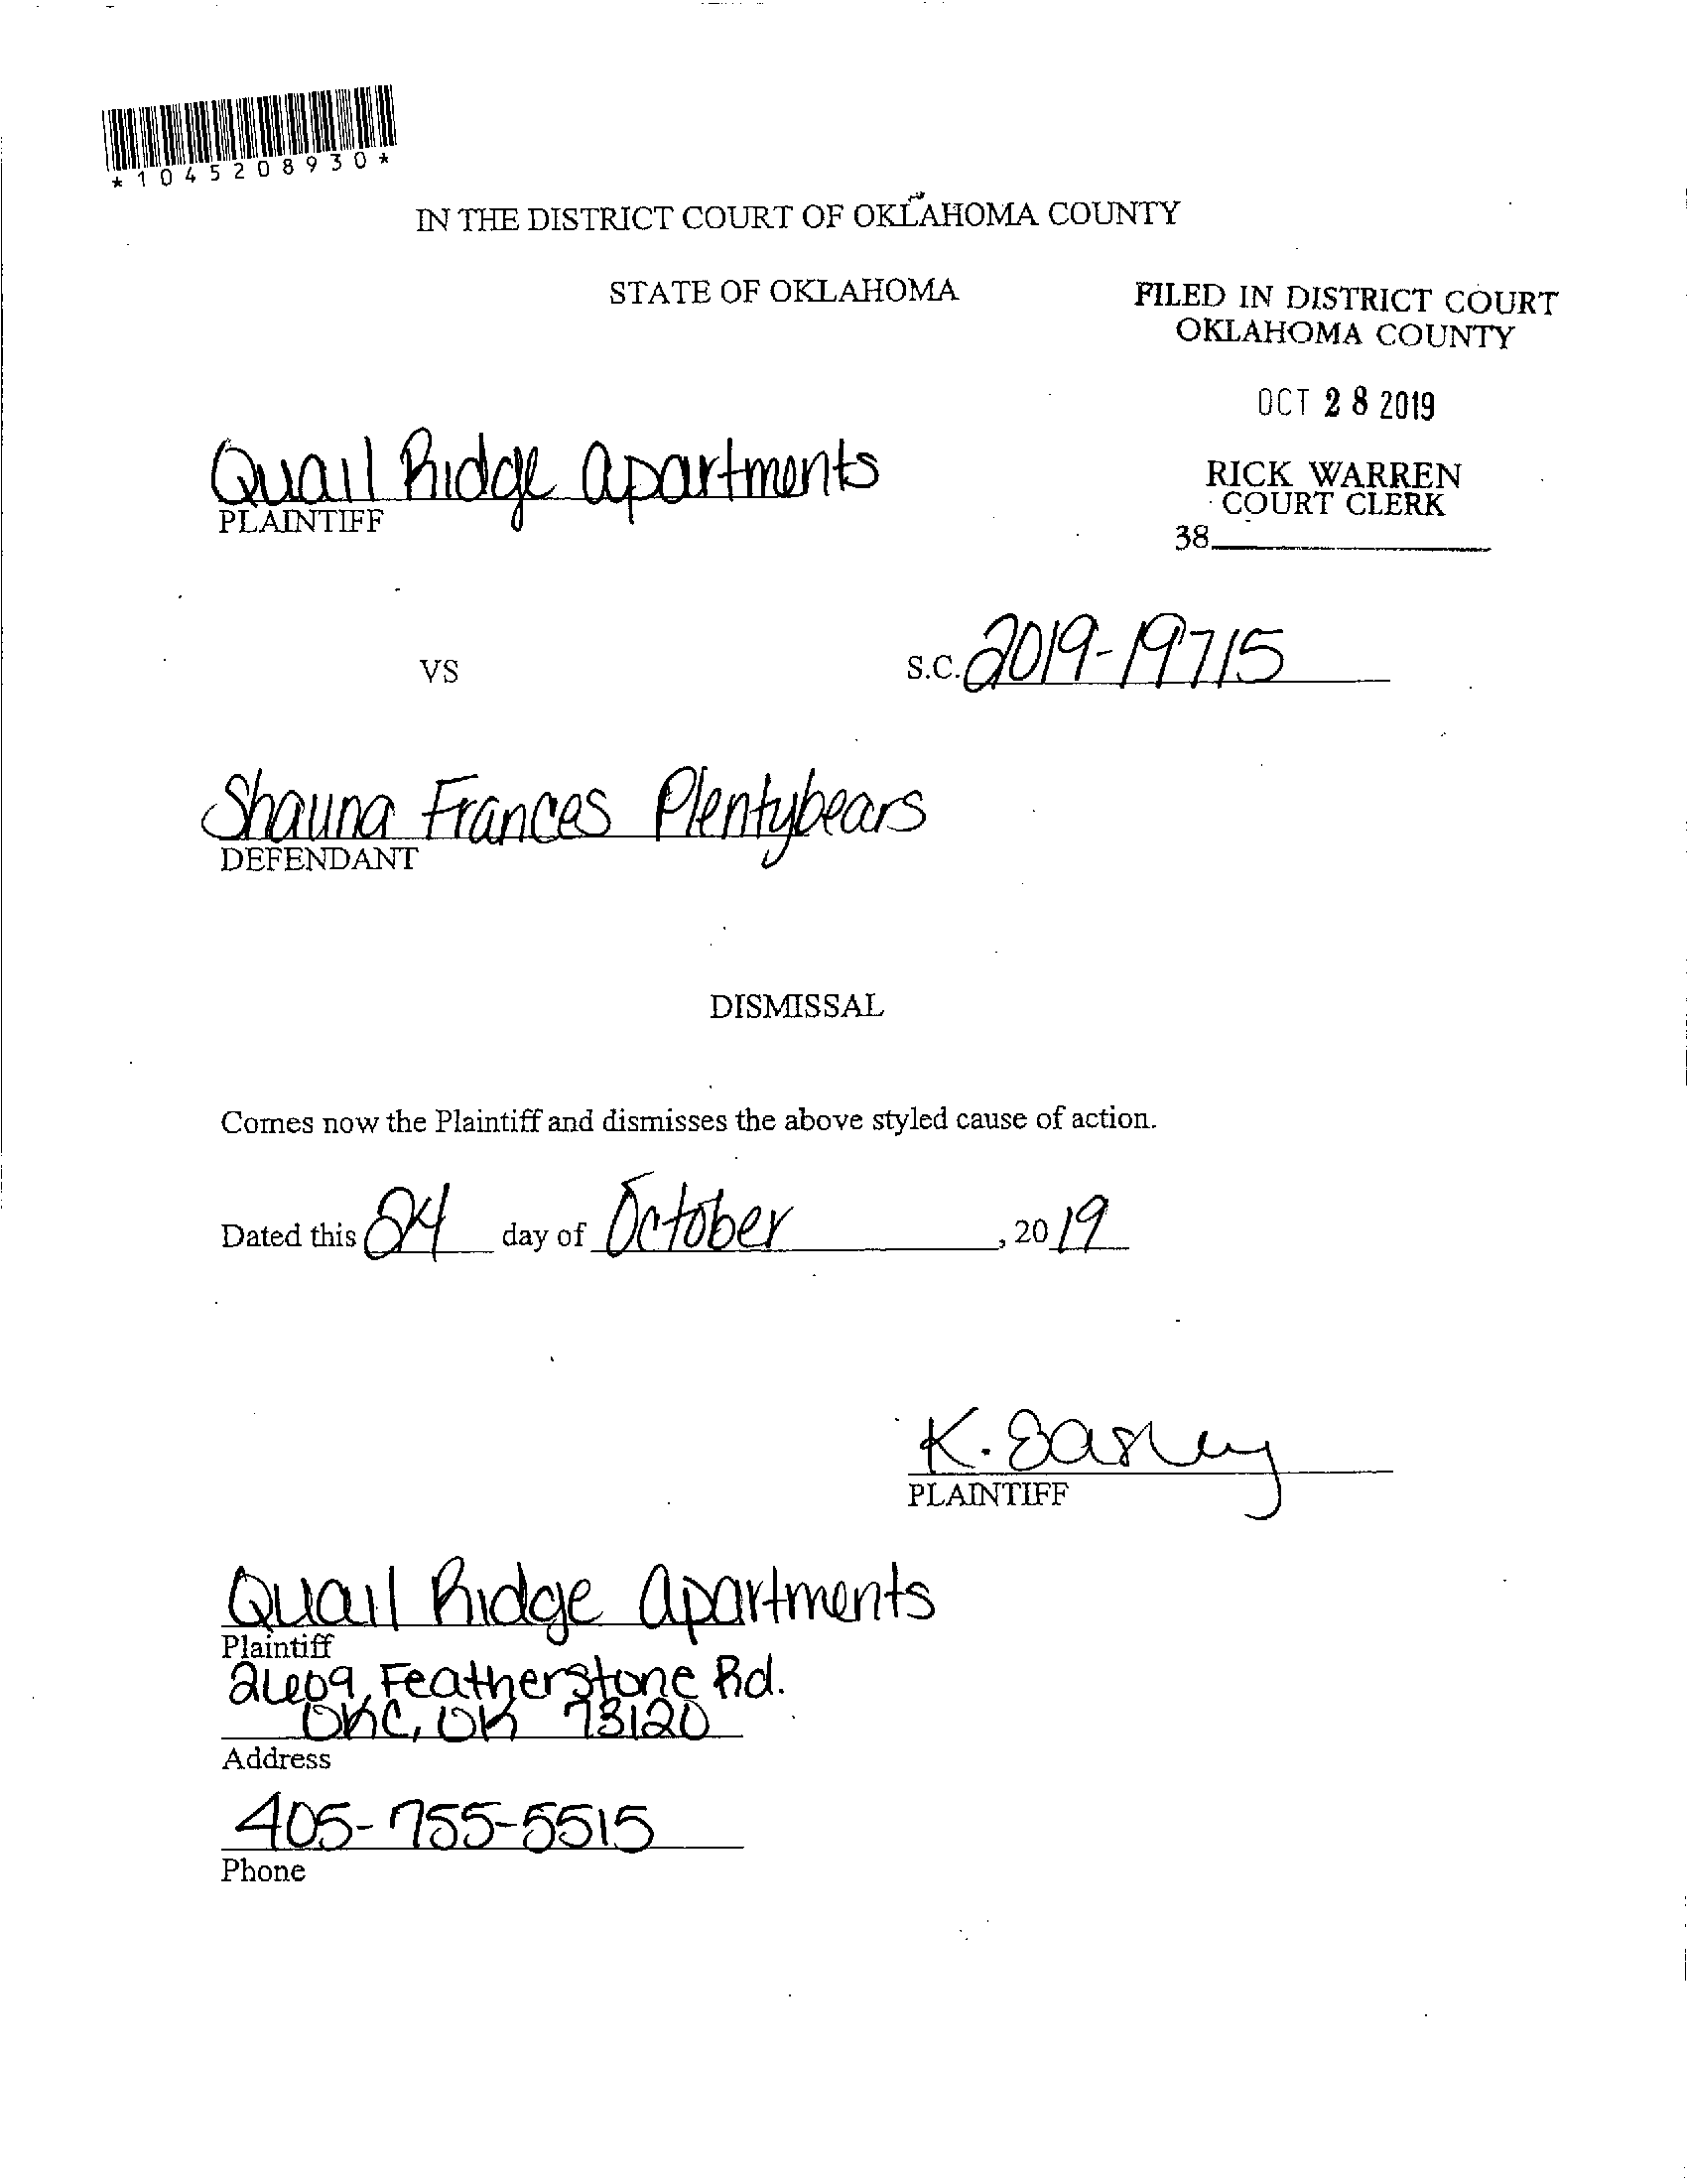 *1045208930*
IN THE DISTRICT COURT OF OKLAHOMA COUNTY
STATE OF OKLAHOMA
FILED IN DISTRICT COURT
OKLAHOMA COUNTY
OCT 28 2019
RICK WARREN
COURT CLERK
38
Quail Ridge Apartments
PLAINTIFF
VS
S.C. 2019-19715
Shauna Frances Plentybears
DEFENDANT
DISMISSAL
Comes now the Plaintiff and dismisses the above styled cause of action.
Dated this 24 day of October, 2019
K. Easley
PLAINTIFF
Quail Ridge Apartments
Plaintiff
2609 Featherstone Rd.
OKC, OK 73120
Address
405-755-5515
Phone